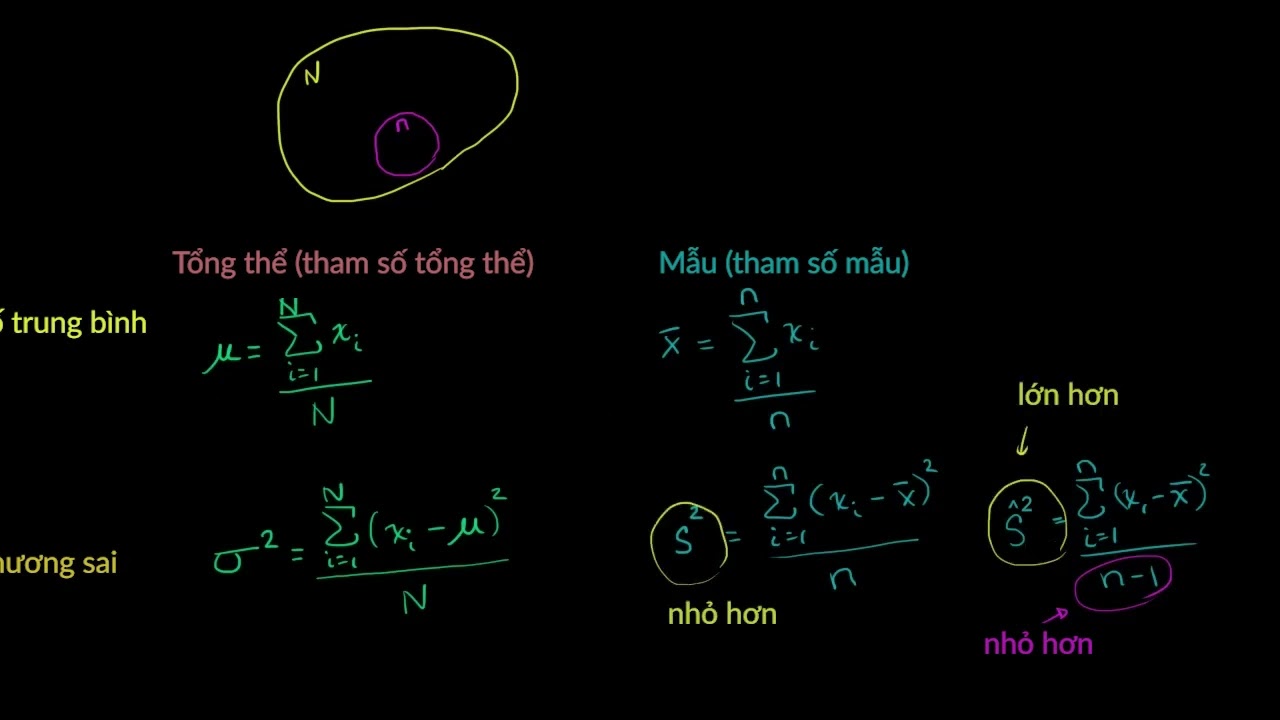 N
n
Tổng thể (tham số tổng thể)
Mẫu (tham số mẫu)
ố trung bình
μ = \frac{\sum_{i=1}^{N} x_i}{N}
x̄ = \frac{\sum_{i=1}^{n} x_i}{n}
lớn hơn
hương sai
σ² = \frac{\sum_{i=1}^{N} (x_i - μ)^2}{N}
S² = \frac{\sum_{i=1}^{n} (x_i - x̄)^2}{n}
Ŝ² = \frac{\sum_{i=1}^{n} (x_i - x̄)^2}{n-1}
nhỏ hơn
nhỏ hơn